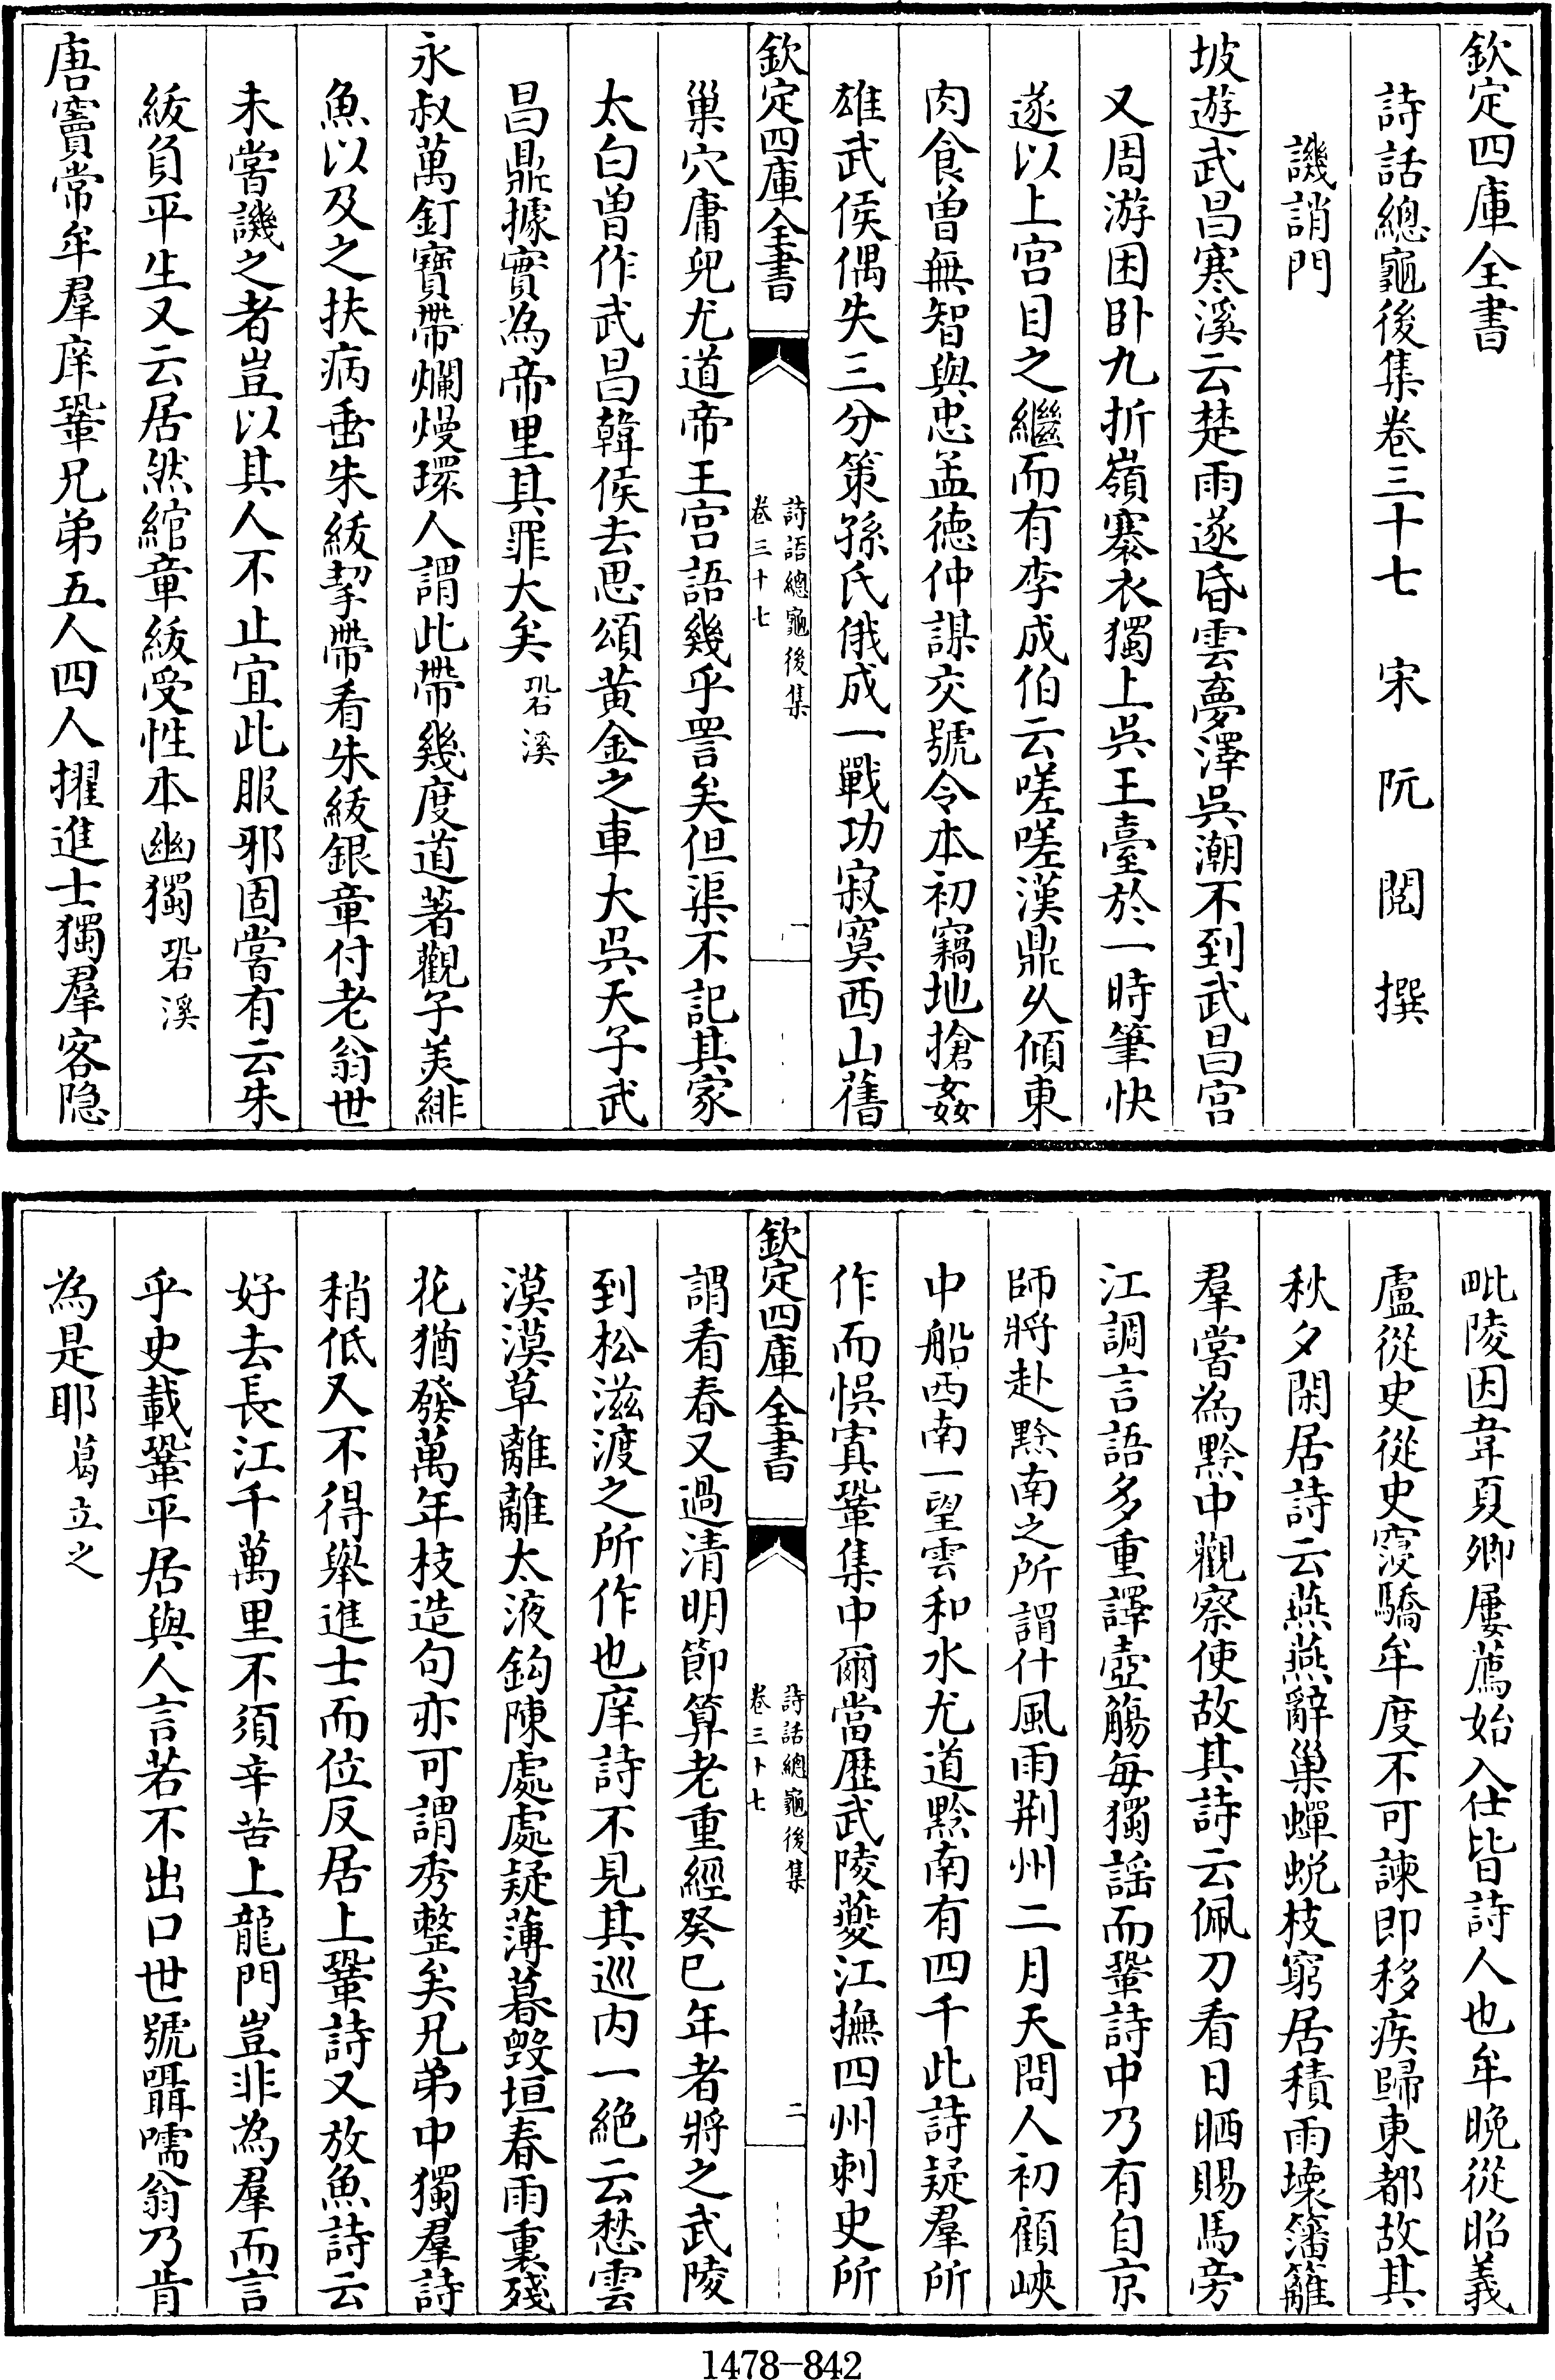 欽定四庫全書
詩話總龜後集卷三十七　宋　阮　閱　撰
譏誚門
坡遊武昌寒溪云楚雨遂昏雲夢澤吳潮不到武昌宮
又周游困卧九折嶺褰衣獨上吳王臺於一時筆快
遂以上宮目之繼而有李成伯云嗟嗟漢鼎乆傾東
肉食曽無智與忠孟徳仲謀交號令本初竊地搶姦
雄武侯偶失三分策孫氏俄成一戰功寂寞西山舊
欽定四庫全書
詩話總龜後集
卷三十七
一
巢穴庸兒尤道帝王宮語幾乎詈矣但渠不記其家
太白曽作武昌韓侯去思頌黄金之車大吳天子武
昌鼎據實為帝里其罪大矣 䂬溪
永叔萬釘寶帶爛熳環人謂此帶幾度道著觀子美緋
魚以及之扶病垂朱紱挈帶看朱紱銀章付老翁世
未嘗譏之者豈以其人不止宜此服邪固嘗有云朱
紱負平生又云居然綰章紱受性本幽獨 䂬溪
唐竇常牟羣庠鞏兄弟五人四人擢進士獨羣客隐
毗陵因韋夏卿屢薦始入仕皆詩人也牟晚從昭義
盧從史從史寖驕牟度不可諫即移疾歸東都故其
秋夕閑居詩云燕燕辭巢蟬蛻枝窮居積雨壞籓籬
羣嘗為黔中觀察使故其詩云佩刀看日晒賜馬旁
江調言語多重譯壺觴每獨謡而鞏詩中乃有自京
師將赴黔南之所謂什風雨荆州二月天問人初顧峽
中船西南一望雲和水尤道黔南有四千此詩疑羣所
作而悞寘鞏集中爾當歴武陵䕫江撫四州刺史所
欽定四庫全書
詩話總龜後集
卷三十七
二
謂看春又過清明節算老重經癸巳年者將之武陵
到松滋渡之所作也庠詩不見其巡内一絶云愁雲
漠漠草離離太液鈎陳處處疑薄暮毀垣春雨裏殘
花猶發萬年枝造句亦可謂秀整矣兄弟中獨羣詩
稍低又不得舉進士而位反居上鞏詩又放魚詩云
好去長江千萬里不須辛苦上龍門豈非為羣而言
乎史載鞏平居與人言若不出口世號囁嚅翁乃肯
為是耶 葛立之
1478-842